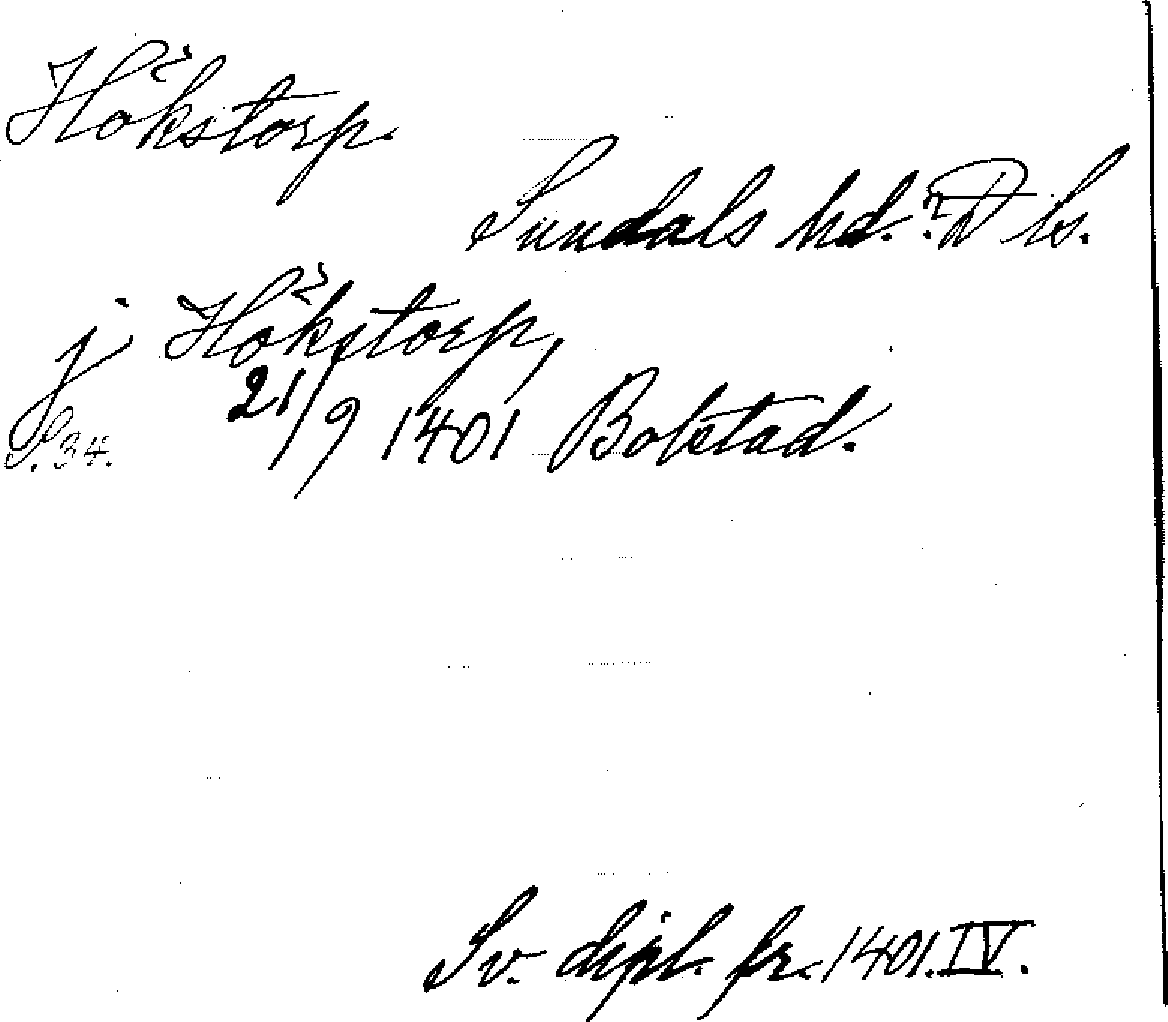 Hökstorp.
Sundals hd. D ls.
j Hökstorp,
S. 34. 21/9 1401 Bolstad.
Sv. dipl. fr. 1401. IV.